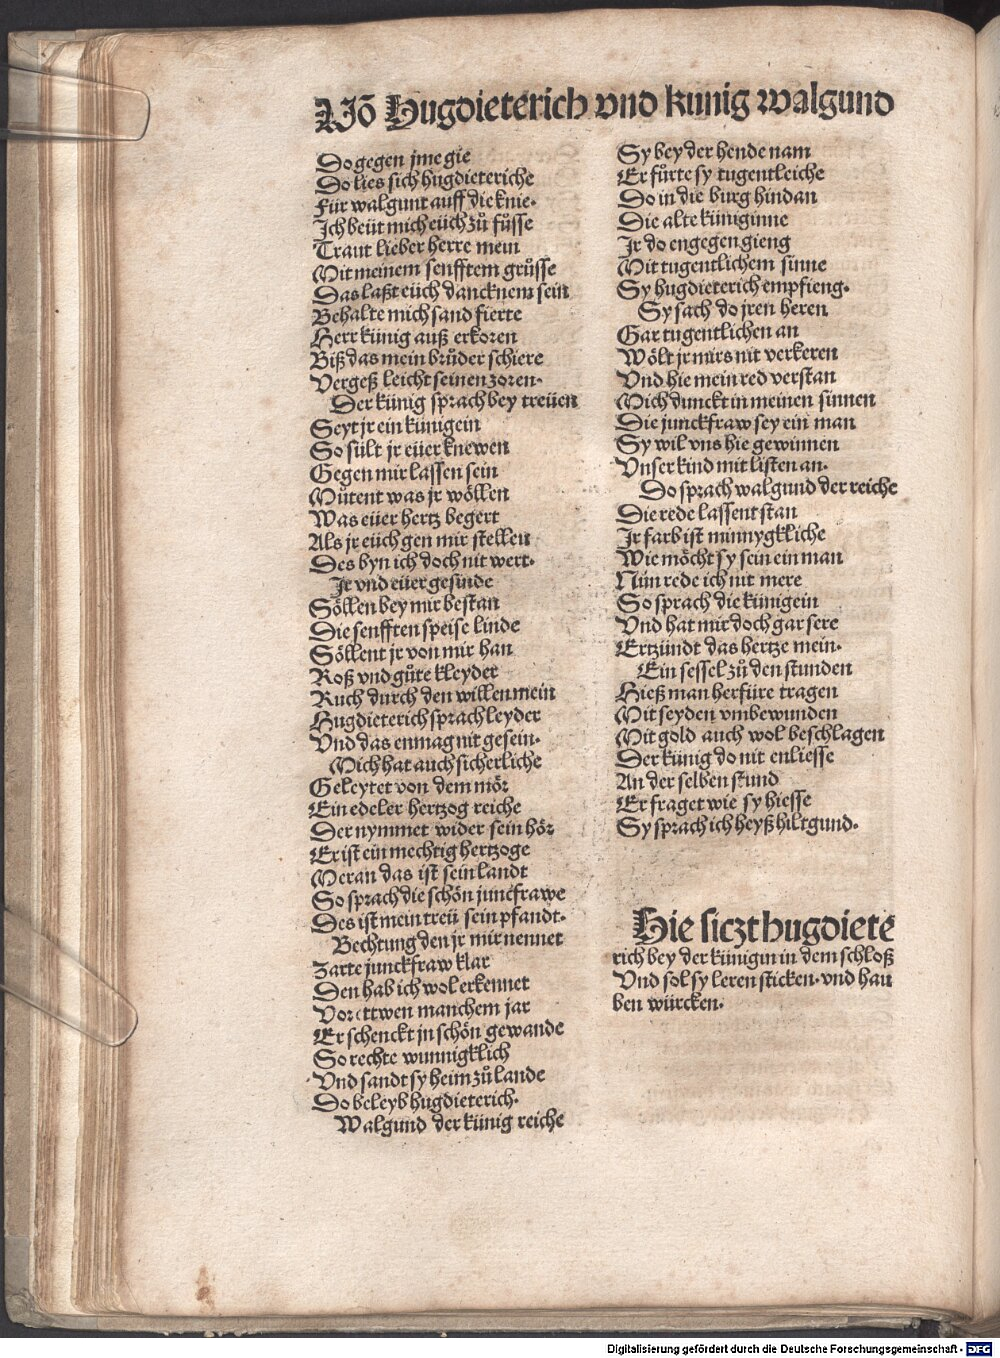 Võ Hugdieterich vnd kunig walgund
Do gegen jme gie
Do lies sich hugdieteriche
Für walgunt auff die knie.
Ich beüt mich eüch zů füsse
Traut lieber herre mein
Mit meinem senfftem grůsse
Das laßt eüch dancknem sein
Behalte mich sand fierte
Herr künig auß erkoren
Biß das mein brůder schiere
Vergeß leicht seinen zoren.
Der künig sprach bey treüen
Seyt jr ein künigein
So sült jr eüer knewen
Gegen mir lassen sein
Můtent was jr wöllen
Was eüer hertz begert
Als jr eüch gen mir stellen
Des byn ich doch nit wert.
Ir vnd eüer gesinde
Söllen bey mir bestan
Die senfften speise linde
Söllent jr von mir han
Roß vnd gůte kleyder
Ruch durch den willen mein
Hugdieterich sprach leyder
Vnd das enmag nit gesein.
Mich hat auch sicherliche
Geleytet von dem mör
Ein edeler hertzog reiche
Der nymmet wider sein hör
Er ist ein mechtig hertzoge
Meran das ist sein landt
So sprach die schön juncfrawe
Des ist mein treü sein pfandt.
Bechtung den jr mir nennet
Zarte junckfraw klar
Den hab ich wol erkennet
Vor ettwen manchem jar
Er schenckt jn schön gewande
So rechte wunnigklich
Vnd sandt sy heim zů lande
Do beleyb hugdieterich.
Walgund der künig reiche
Sy bey der hende nam
Er fůrte sy tugentleiche
Do in die burg hindan
Die alte küniginne
Ir do engegen gieng
Mit tugentlichem sinne
Sy hugdieterich empfieng.
Sy sach do jren heren
Gar tugentlichen an
Wölt jr mirs nit verkeren
Vnd hie mein red verstan
Mich dunckt in meinen sinnen
Die junckfraw sey ein man
Sy wil vns hie gewinnen
Vnser kind mit listen an.
Do sprach walgund der reiche
Die rede lassent stan
Ir farb ist minnygkliche
Wie möcht sy sein ein man
Nün rede ich nit mere
So sprach die künigein
Vnd hat mir doch gar sere
Ertzündt das hertze mein.
Ein sessel zů den stunden
Hieß man herfüre tragen
Mit seyden vmbewunden
Mit gold auch wol beschlagen
Der künig do nit enliesse
An der selben stund
Er fraget wie sy hiesse
Sy sprach ich heyß hiltgund.
Hie siczt hugdiete
rich bey der künigin in dem schloß
Vnd sol sy leren sticken. vnd hau
ben würcken.
Digitalisierung gefördert durch die Deutsche Forschungsgemeinschaft - DFG